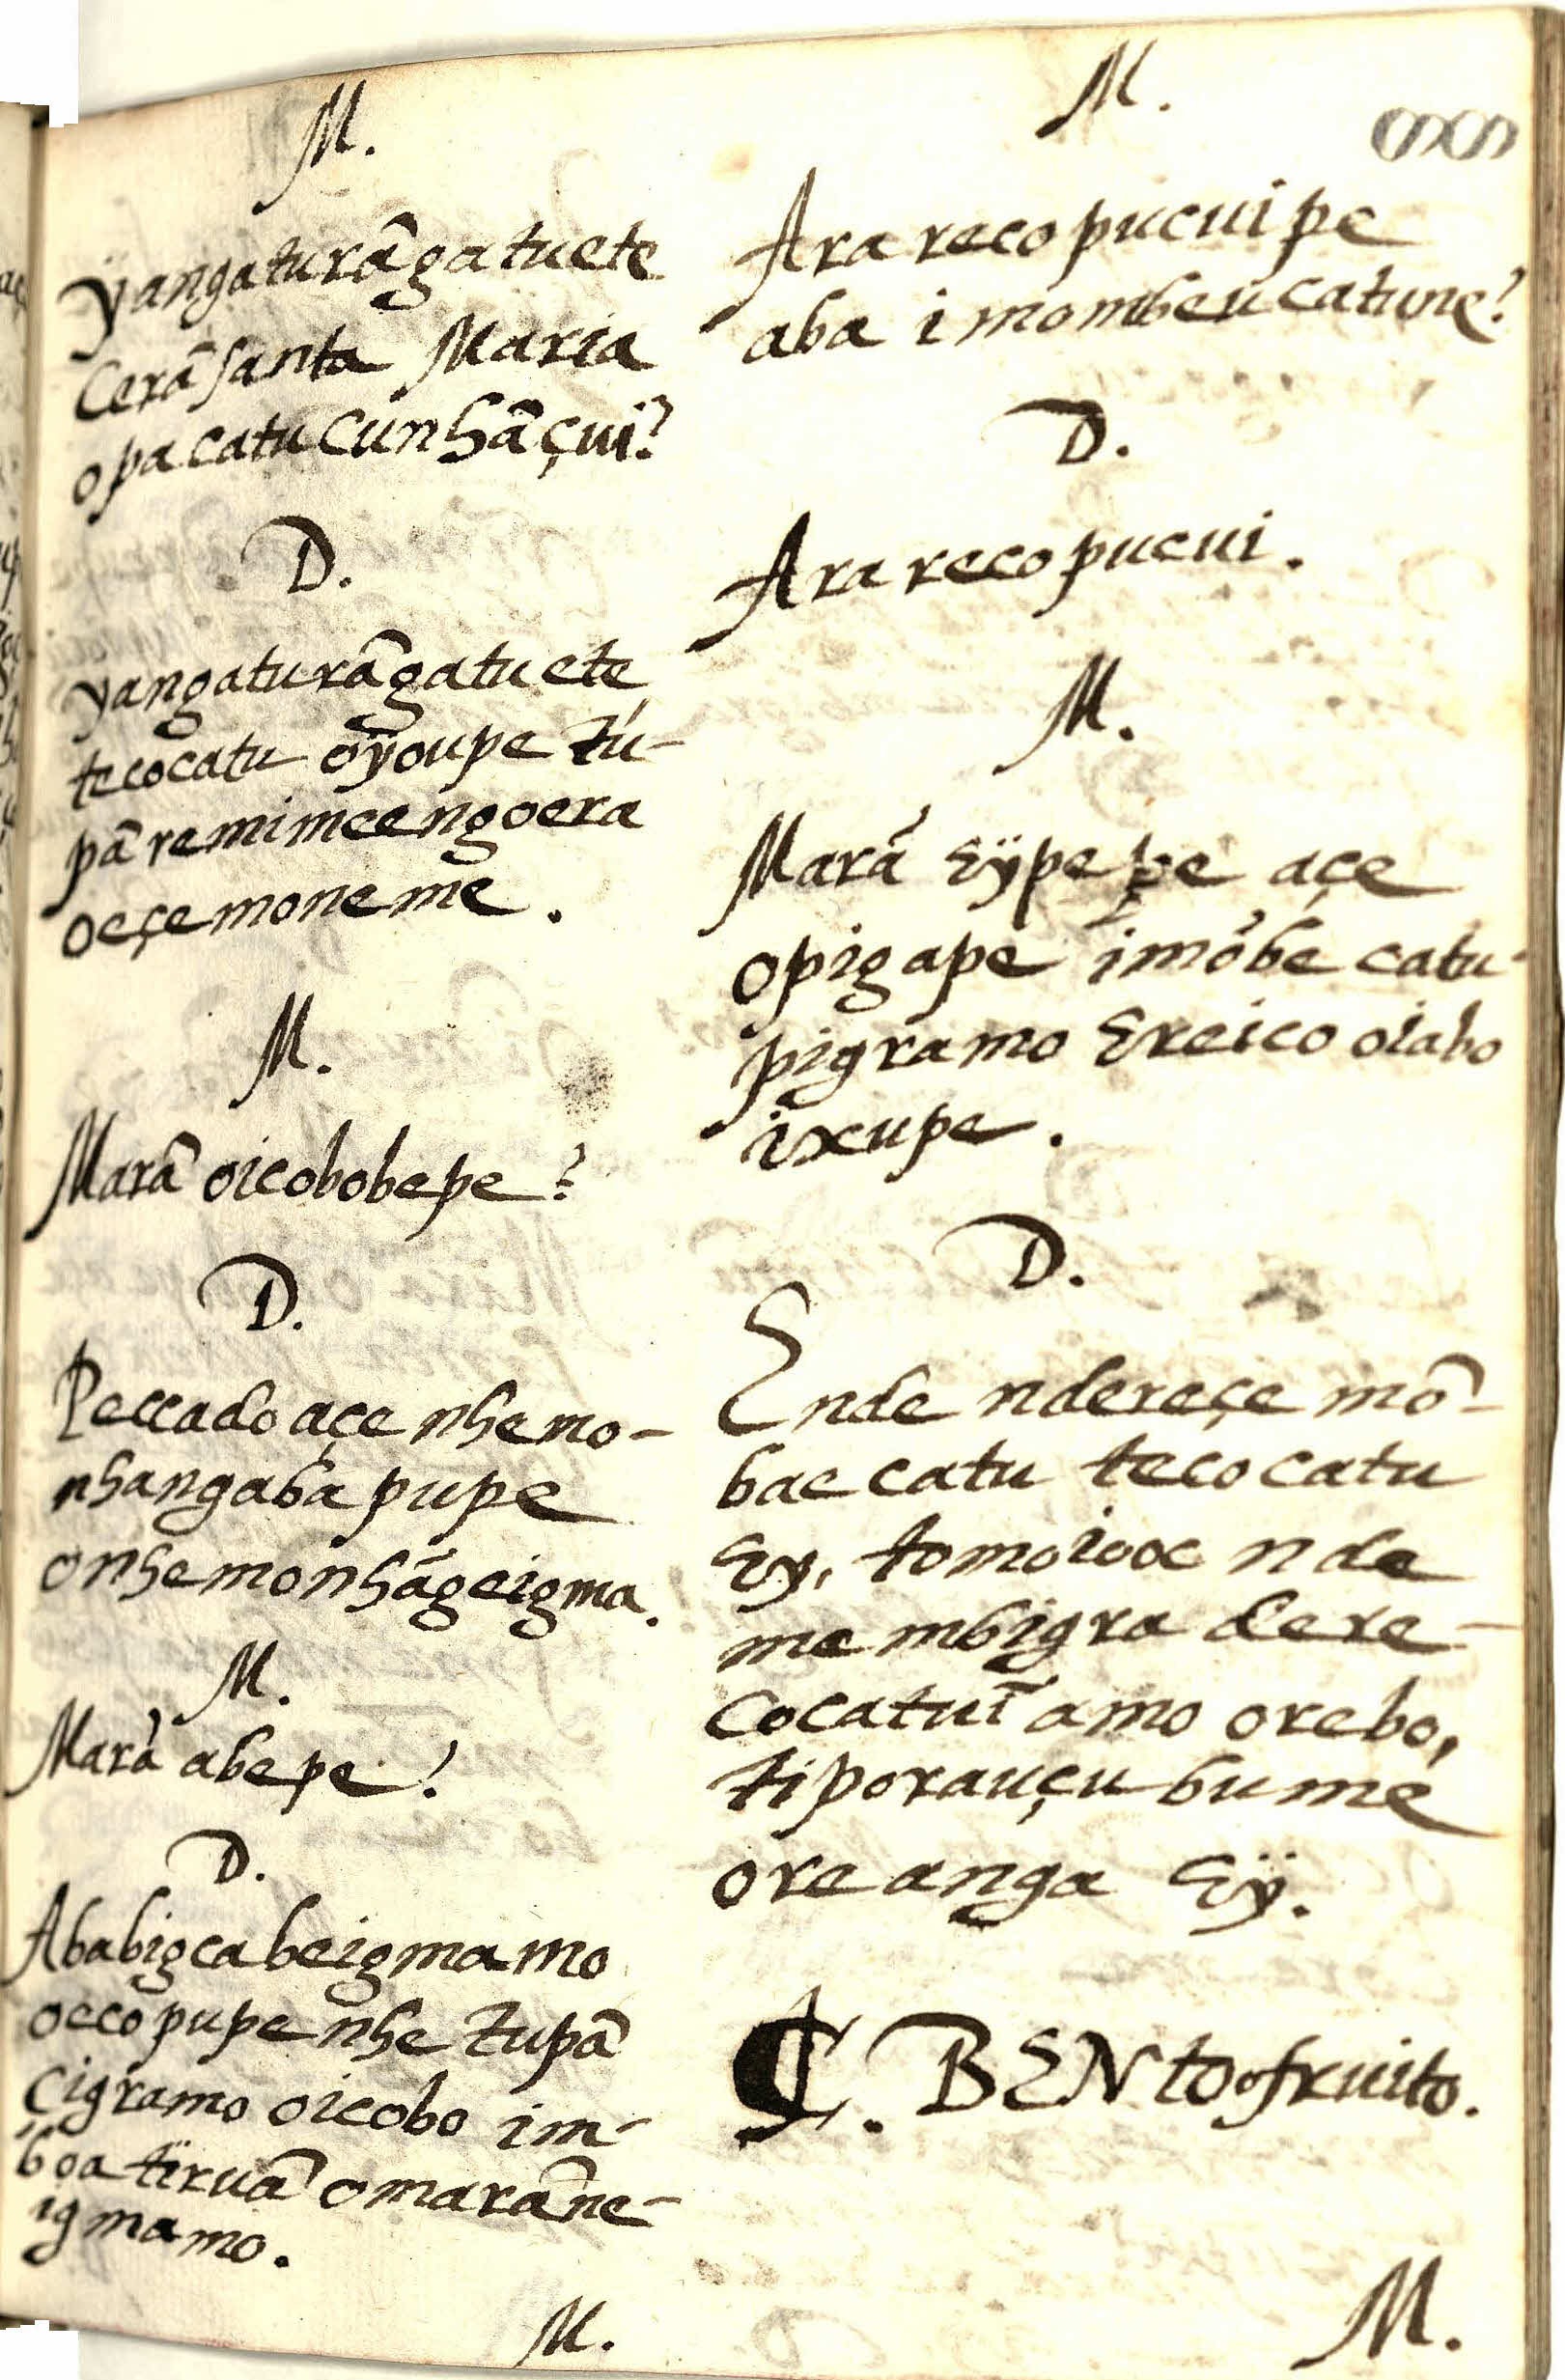 M.
yangaturãgatuete
Cerã santa Maria
opacatu cunhã çui?
D.
yangaturãgatuete
tecocatu oyoupe Tu-
pã remimeengoera
oeçe moneme.
M.
Marã oicobobepe?
D.
Peccado açe nhemo-
nhangaba pupe
onhemonhãgeigma.
M.
Marã abepe?
D.
Ababigcabeigmamo
oeco pupe nhe Tupã
Cigramo oicobo im-
boa tiruã omarãne-
igmamo.
M.
M.
Ara reco pucuipe
aba i mombeu catune?
D.
Ara reco pucui.
M.
Marã Eÿpe pe açe
opigape imõbe catu-
pigramo Ereico oiabo
ixupe.
D.
Ende ndereçe mõ-
bae catu tecocatu
Ey, tomoioc nde
membigra dere-
cocatuĩ amo orebo,
tiporauçubume
ore anga Eÿ.
C. BENto ofruito.
M.